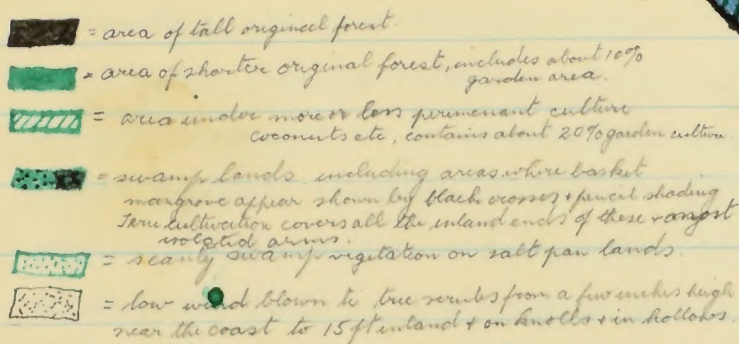 = area of tall original forest.
= area of shorter original forest, includes about 10%
garden area.
= area under more or less permenant culture
coconuts etc, contains about 20% garden culture.
= swamp lands including areas where basket
mangrove appear shown by black crosses + pencil shading
cultivation covers all the inland ends of these + amongst
isolated arms.
= scanty swamp vegetation on salt pan lands.
= low wind blown ti tree scrubs from a few inches high
near the coast to 15 ft inland + on knolls + in hollows.